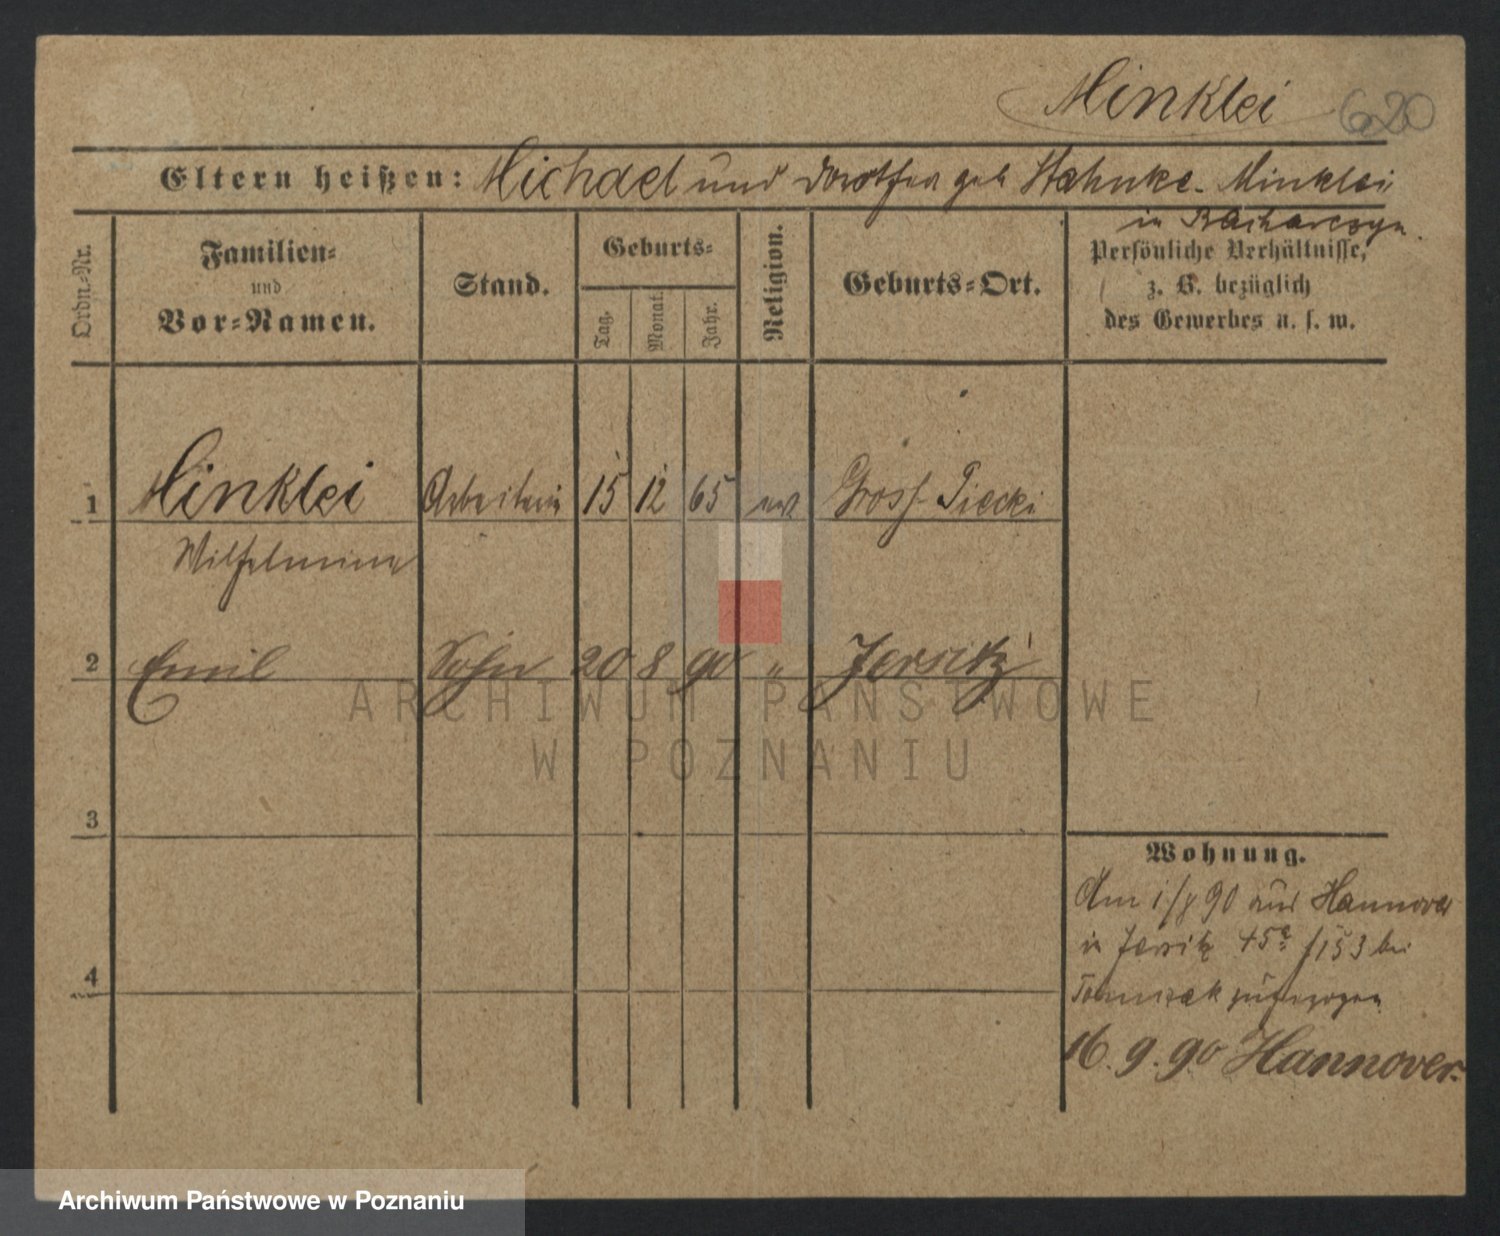 Minklei 620
Eltern heißen: Michael und Dorothea geb Stahnke. Minklei
in
Ordn.-Nr.
Familien-
und
Vor-Namen.
Stand.
Geburts-
Tag.
Monat.
Jahr.
Religion.
Geburts-Ort.
Persönliche Verhältnisse,
z. B. bezüglich
des Gewerbes u. s. w.
1 Minklei Arbeiterin 15 12 65 Gross Piecki
Wilhelmine
2 Emil Sohn 20 8 90 " Jersitz
3
4
Wohnung.
Am 90 aus Hannover
in Jersitz bei
zugezogen
16. 9. 90 Hannover.
ARCHIWUM PAŃSTWOWE
W POZNANIU
Archiwum Państwowe w Poznaniu